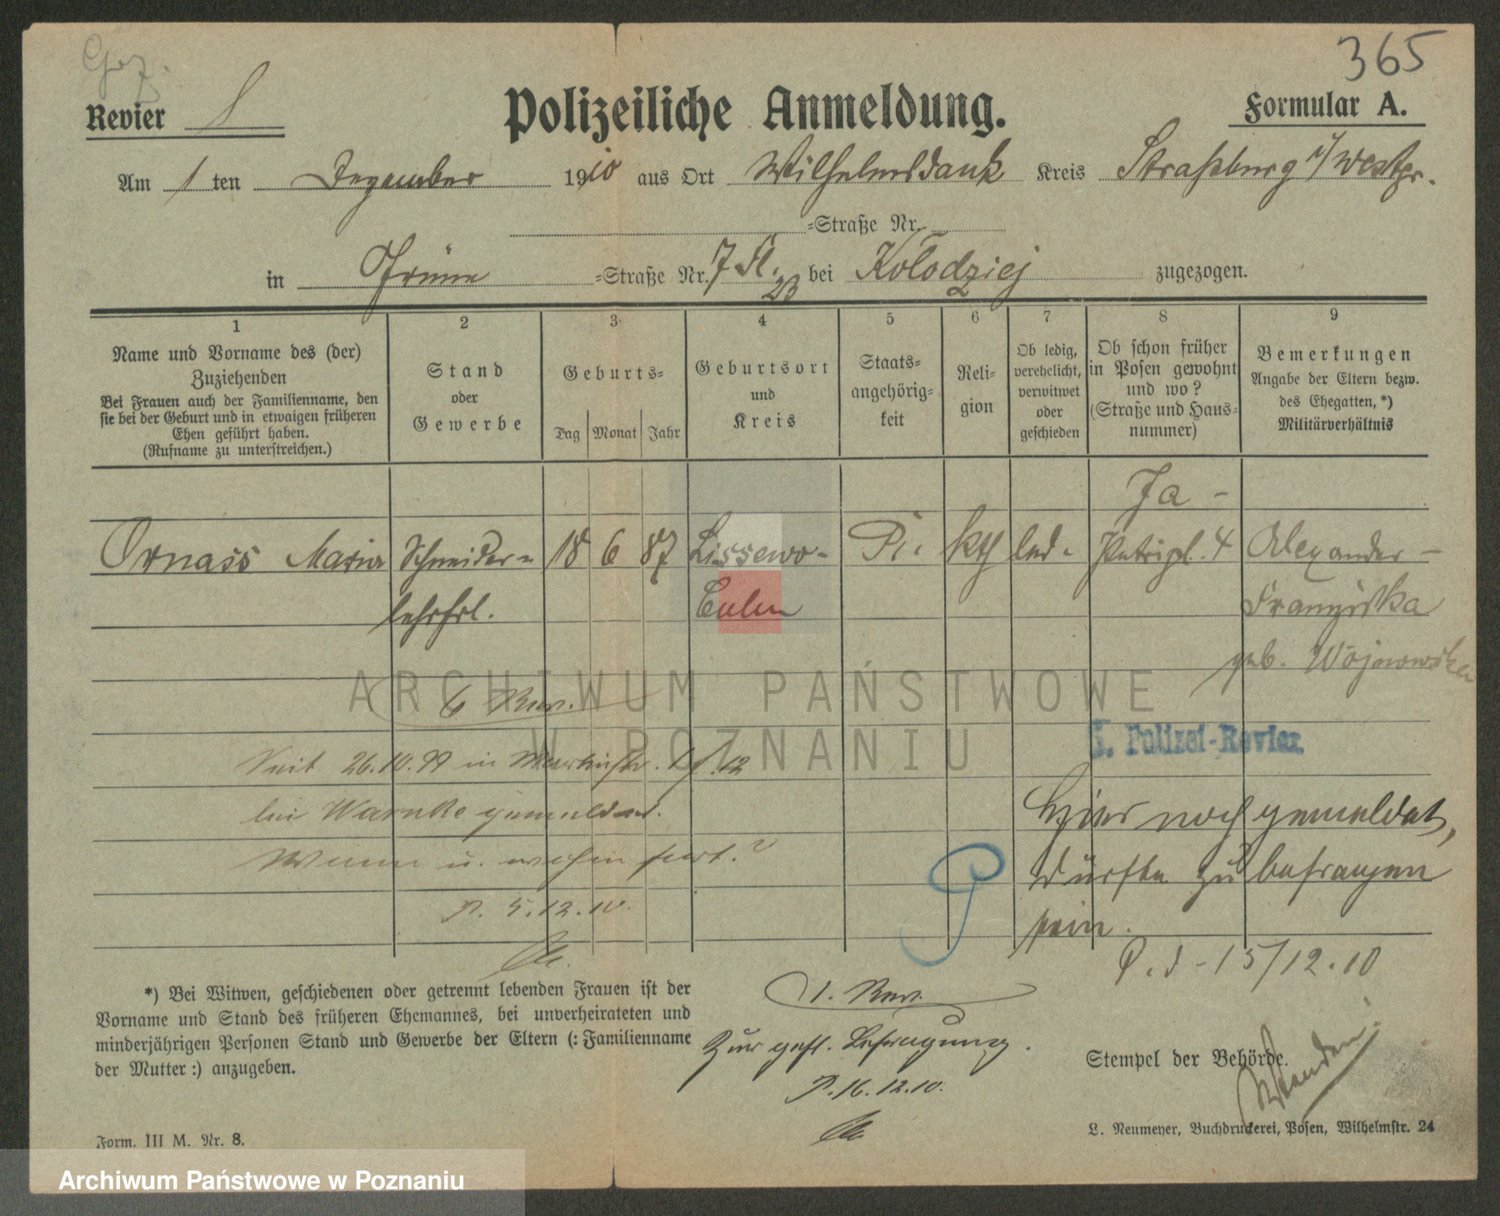 365
Revier 8
Polizeiliche Anmeldung.
Formular A.
Am 1 ten Dezember 1910 aus Ort Wilhelmsdank Kreis Straßburg i/Westpr.
=Straße Nr.
in Grüne =Straße Nr. 7 bei Kolodziej zugezogen.
23
1 2 3 4 5 6 7 8 9
Name und Vorname des (der)
Zuziehenden
Bei Frauen auch der Familienname, den
sie bei der Geburt und in etwaigen früheren
Ehen geführt haben.
(Rufname zu unterstreichen.)
Stand
oder
Gewerbe
Geburts=
Tag Monat Jahr
Geburtsort
und
Kreis
Staats=
angehörig=
keit
Reli=
gion
Ob ledig,
verehelicht,
verwitwet
oder
geschieden
Ob schon früher
in Posen gewohnt
und wo?
(Straße und Haus=
nummer)
Bemerkungen
Angabe der Eltern bezw.
des Ehegatten,*)
Militärverhältnis
Ja -
Ornass Maria Schneider= 18 6 87 Lissewo- Pr. kth led. Petripl. 4 Alexander -
lehrfrl. Culm Franziska
geb. Wojnowska
ARCHIWUM PAŃSTWOWE
W POZNANIU
6 Rev.
5. Polizei-Revier
Seit 26.10.99 in Martinstr.
bei Warnke gemeldet.
Wann u. wohin fort?
P. 5.12.10.
Hier noch gemeldet,
dürfte zu befragen
sein.
P. d. 15/12.10
*) Bei Witwen, geschiedenen oder getrennt lebenden Frauen ist der
Vorname und Stand des früheren Ehemannes, bei unverheirateten und
minderjährigen Personen Stand und Gewerbe der Eltern (: Familienname
der Mutter :) anzugeben.
1. Rev.
zur gefl. Befragung.
P. 16.12.10.
Stempel der Behörde.
Form. III M. Nr. 8.
L. Neumeyer, Buchdruckerei, Posen, Wilhelmstr. 24
Archiwum Państwowe w Poznaniu